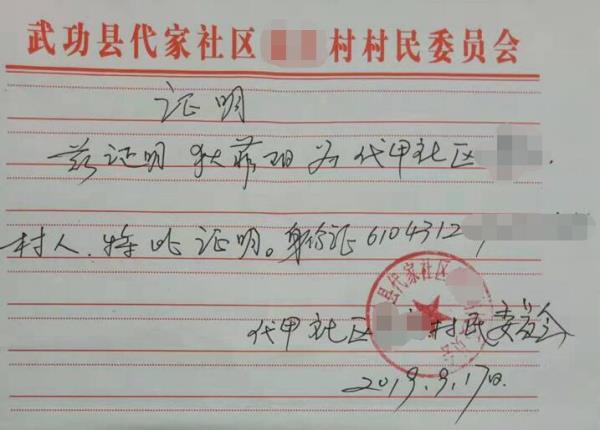 武功县代家社区 村村民委员会
证明
兹证明 狄菲 为 代甲社区
村人.特此证明。身份证6104312
县代家社区
代甲社区 村民委员会
2019.9.17日